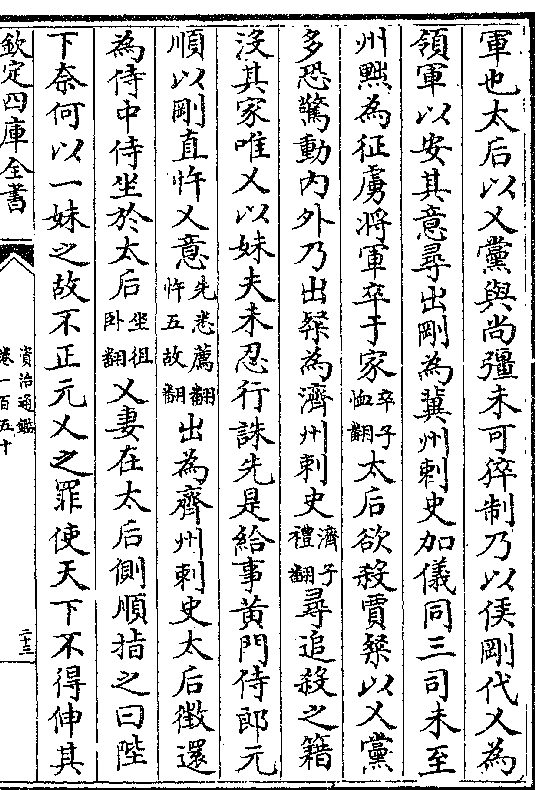 軍也太后以乂黨與尚彊未可猝制乃以侯剛代乂為
領軍以安其意尋出剛為冀州刺史加儀同三司未至
州黜為征虜將軍卒于家卒子恤翻太后欲殺賈粲以乂黨
多恐驚動內外乃出粲為濟州刺史濟子禮翻尋追殺之籍
沒其家唯乂以妹夫未忍行誅先是給事黄門侍郎元
順以剛直忤乂意先悉薦翻忤五故翻出為齊州刺史太后徴還
為侍中侍坐於太后坐徂卧翻乂妻在太后側順指之曰陛
下奈何以一妹之故不正元乂之罪使天下不得伸其
欽定四庫全書
資治通鑑
卷一百五十
二十三